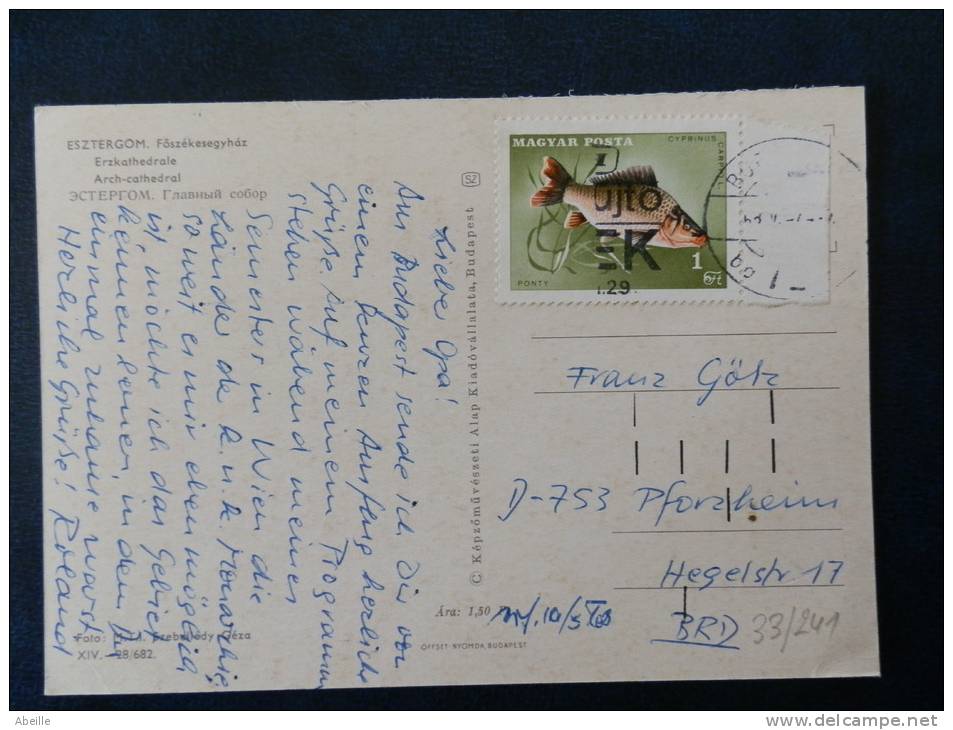 ESZTERGOM. Főszékesegyház
Erzkathedrale
Arch-cathedral
ЭСТЕРГОМ. Главный собор
Liebe Opa!
Aus Budapest sende ich Dir von
einem kurzen Ausflug herzliche
Grüße. Auf meinem Programm
stehen während meines
Semester in Wien die
Länder der k. u. k. Monarchie,
so weit es mir eben möglich
ist, möchte ich das Gebiet
kennenlernen, in dem Du
einmal zuhause warst.
Herzliche Grüße! Roland
Foto: Szebellédy Géza
XIV.—28/682.
SZ
© Képzőművészeti Alap Kiadóvállalata, Budapest
Ára: 1,50
OFFSET-NYOMDA, BUDAPEST
MAGYAR POSTA
CYPRINUS CARPIO L.
PONTY
1 Ft
ujto
EK
.29.
Franz Götz
D-753 Pforzheim
Hegelstr 17
BRD
33/241
Abeille
www.delcampe.net